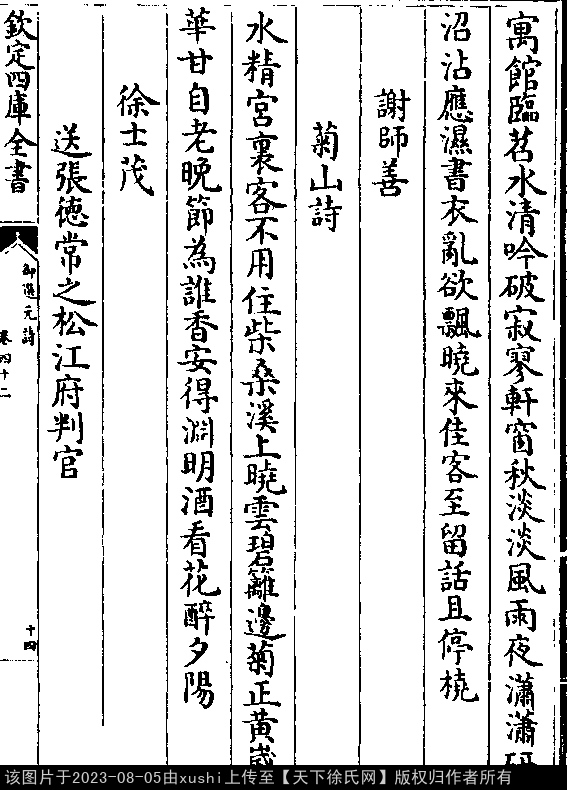 寓館臨苕水清吟破寂寥軒窗秋淡淡風雨夜瀟瀟研
沼沾應濕書衣亂欲飄曉來佳客至留話且停橈
謝師善
菊山詩
水精宮裏客不用住柴桑溪上曉雲碧籬邊菊正黃歲
華甘自老晚節為誰香安得淵明酒看花醉夕陽
徐士茂
送張德常之松江府判官
欽定四庫全書
御選元詩
卷四十二
十四
该图片于2023-08-05由xushi上传至【天下徐氏网】版权归作者所有